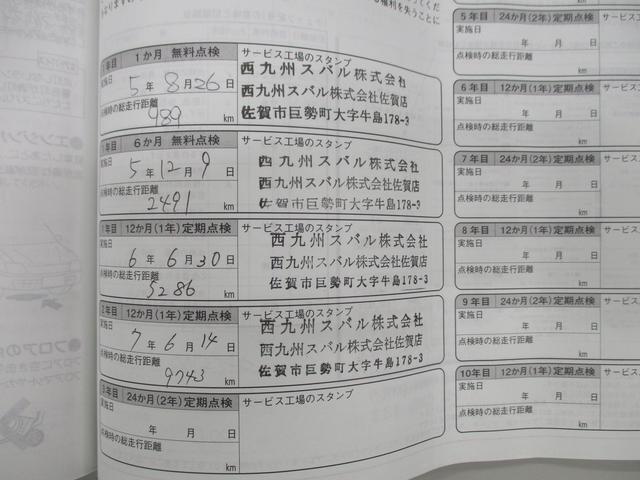 の権利を失うことに
1年目 1か月 無料点検
サービス工場のスタンプ
実施日
5年8月26日
点検時の総走行距離
989 km
西九州スバル株式会社
西九州スバル株式会社佐賀店
佐賀市巨勢町大字牛島178-3
6か月 無料点検
サービス工場のスタンプ
実施日
5年12月9日
点検時の総走行距離
2491 km
西九州スバル株式会社
西九州スバル株式会社佐賀店
佐賀市巨勢町大字牛島178-3
1年目 12か月(1年)定期点検
サービス工場のスタンプ
実施日
6年6月30日
点検時の総走行距離
5286 km
西九州スバル株式会社
西九州スバル株式会社佐賀店
佐賀市巨勢町大字牛島178-3
2年目 12か月(1年)定期点検
サービス工場のスタンプ
実施日
7年6月14日
点検時の総走行距離
9743 km
西九州スバル株式会社
西九州スバル株式会社佐賀店
佐賀市巨勢町大字牛島178-3
3年目 24か月(2年)定期点検
サービス工場のスタンプ
実施日
年 月 日
点検時の総走行距離
km
5年目 24か月(2年)定期点検
実施日
年 月 日
点検時の総走行距離
km
6年目 12か月(1年)定期点検
実施日
年 月 日
点検時の総走行距離
km
7年目 24か月(2年)定期点検
実施日
年 月 日
点検時の総走行距離
km
8年目 12か月(1年)定期点検
実施日
年 月 日
点検時の総走行距離
km
9年目 24か月(2年)定期点検
実施日
年 月 日
点検時の総走行距離
km
10年目 12か月(1年)定期点検
実施日
年 月 日
点検時の総走行距離
km
●エンジン
●フロアの